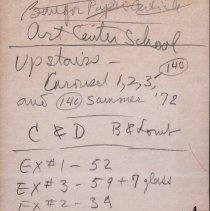 Art Center School
Upstairs -
Carousel 1, 2, 3, 140
and 140 Summer '72
C & D B &
EX #1 - 52
EX #3 - 59 + 7 glass
EX #2 - 39